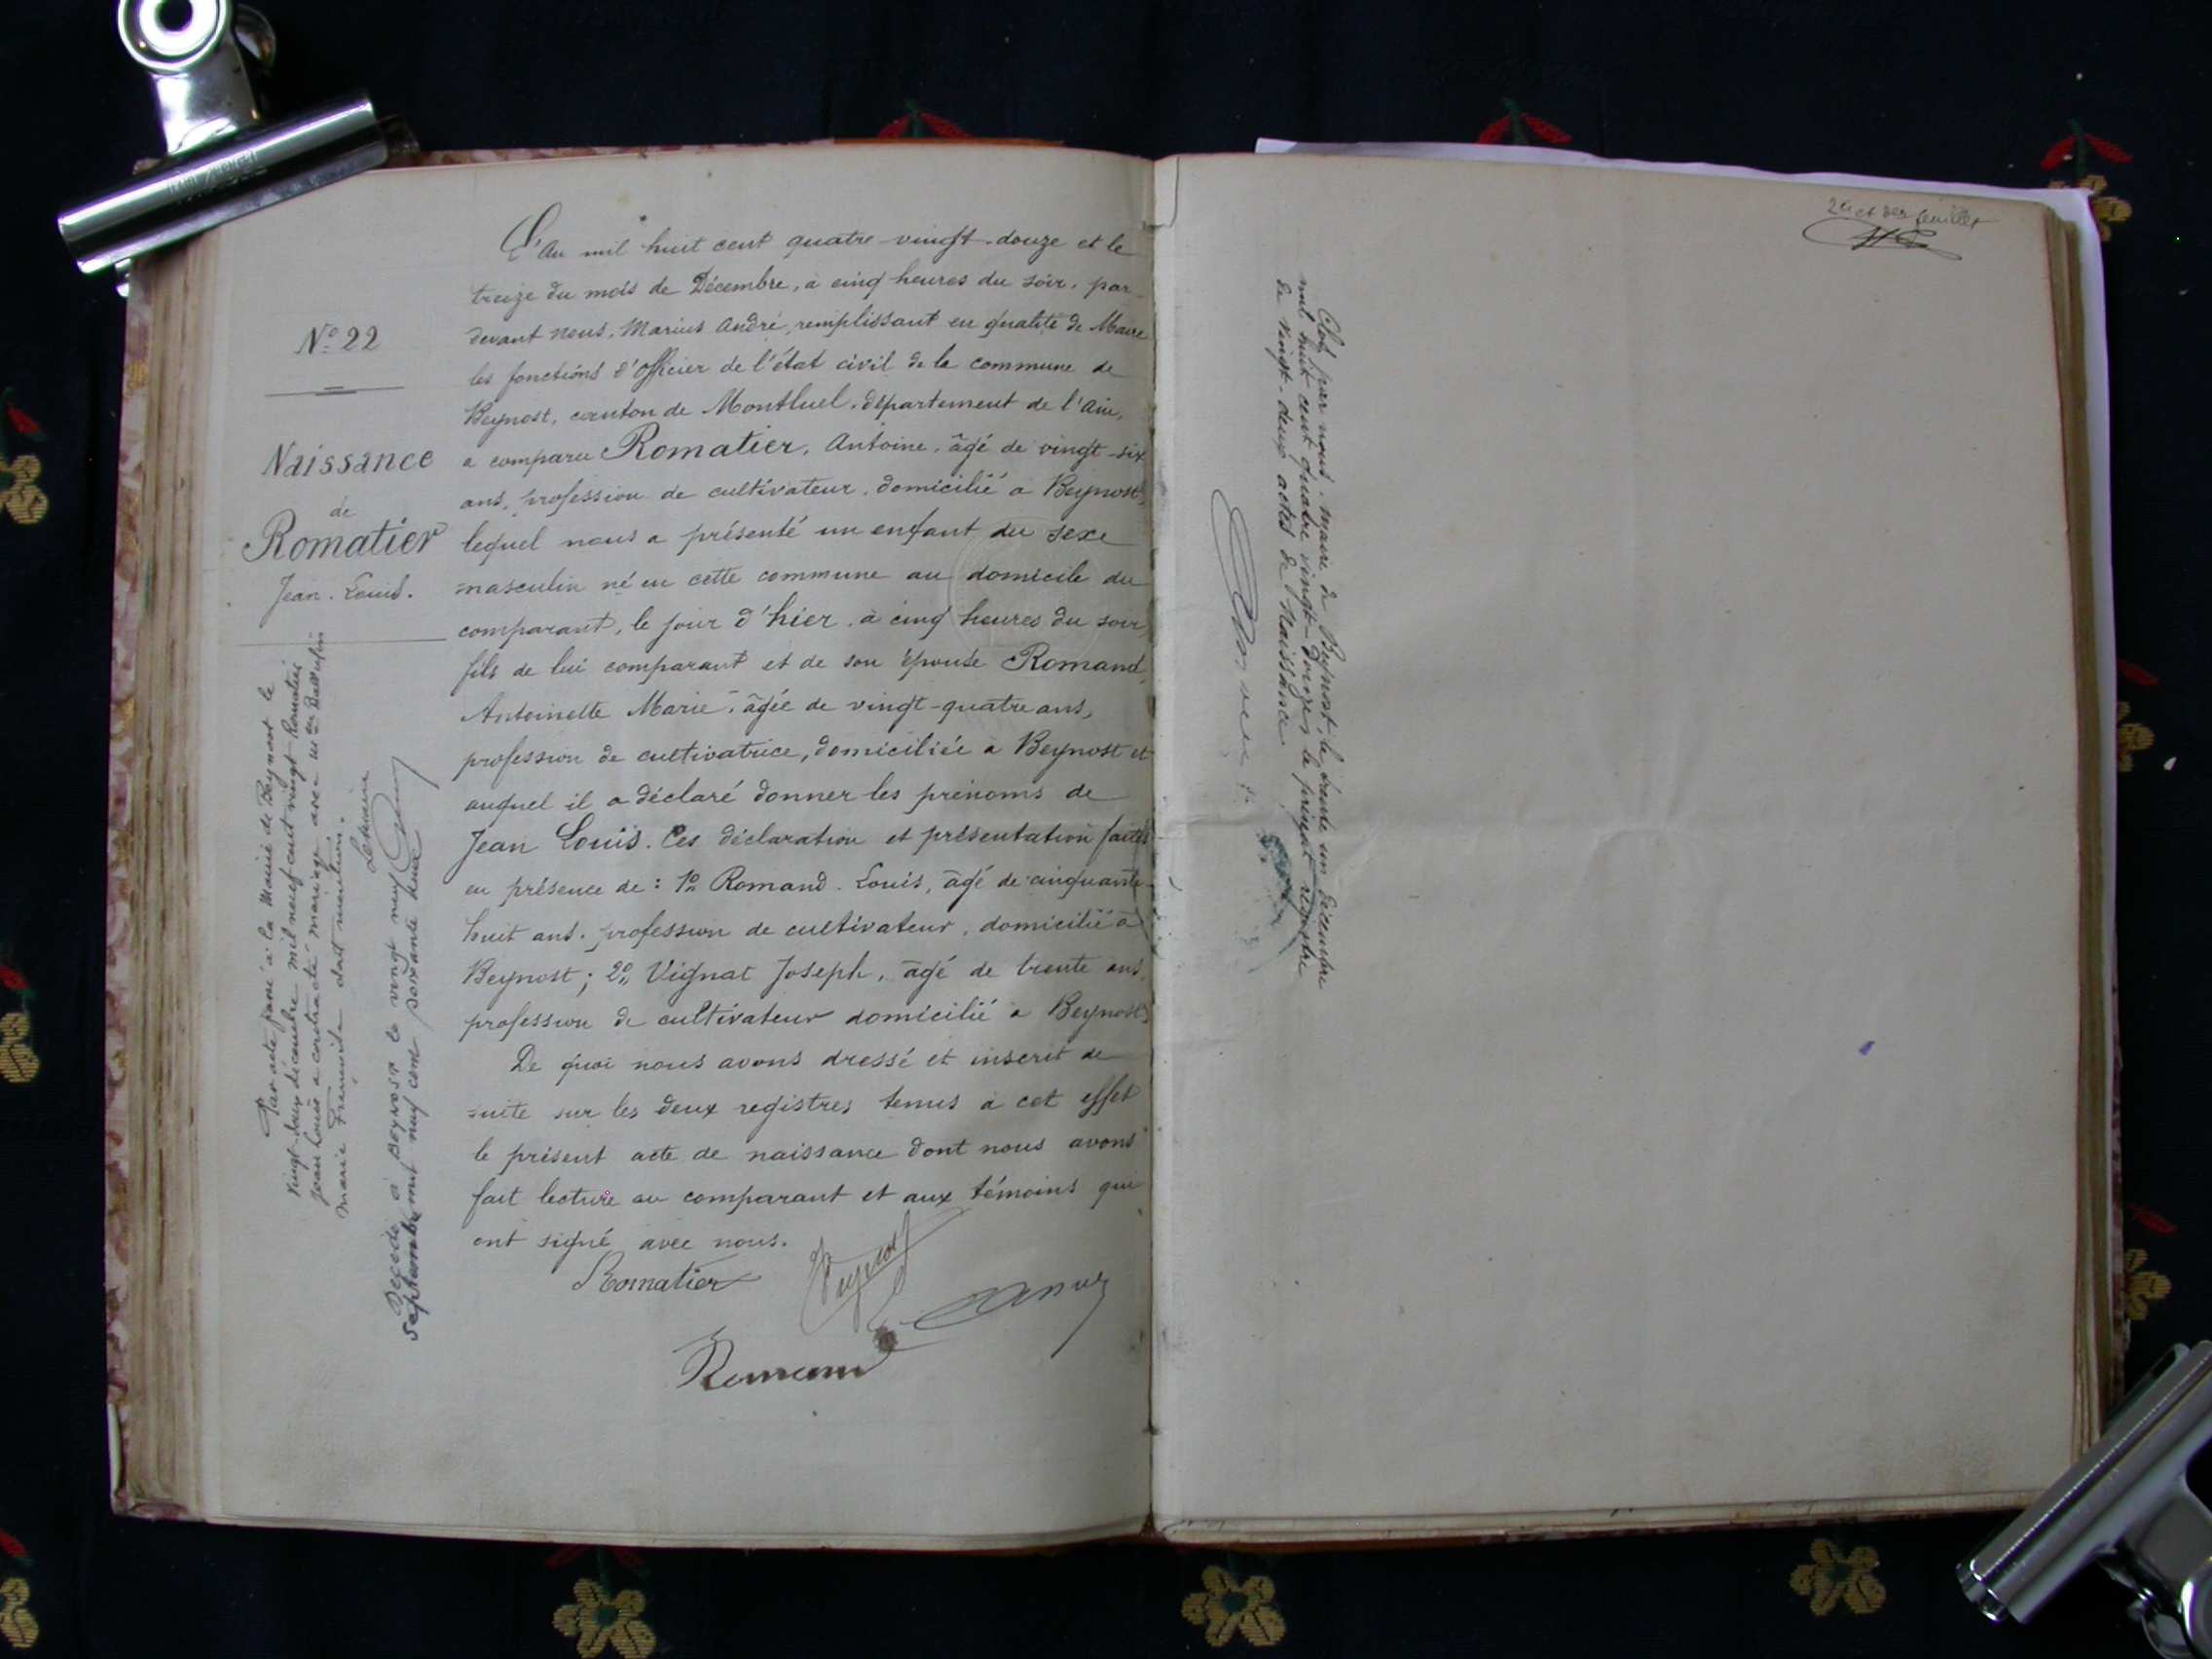 N° 22
Naissance
de
Romatier
Jean. Louis.
L'An mil huit cent quatre-vingt-douze et le
treize du mois de Décembre, à cinq heures du soir, par
devant nous, Marius André, remplissant en qualité de Maire
les fonctions d'Officier de l'état civil de la commune de
Beynost, canton de Montluel, département de l'Ain,
a comparu Romatier, Antoine, âgé de vingt-six
ans, profession de cultivateur, domicilié à Beynost,
lequel nous a présenté un enfant du sexe
masculin né en cette commune au domicile du
comparant, le jour d'hier, à cinq heures du soir
fils de lui comparant et de son épouse Romand,
Antoinette Marie, âgée de vingt-quatre ans,
profession de cultivatrice, domiciliée à Beynost et
auquel il a déclaré donner les prénoms de
Jean Louis. Ces déclaration et présentation faites
en présence de : 1° Romand. Louis, âgé de cinquante-
huit ans, profession de cultivateur, domicilié à
Beynost ; 2° Vignat Joseph, âgé de trente ans,
profession de cultivateur domicilié à Beynost
De quoi nous avons dressé et inscrit de
suite sur les deux registres tenus à cet effet
le présent acte de naissance dont nous avons
fait lecture au comparant et aux témoins qui
ont signé avec nous.
Romatier
Romand
Par acte passé à la Mairie de Beynost le
vingt-deux décembre mil neuf cent vingt Romatier
Jean Louis a contracté mariage avec
Marie Françoise dont mention.
Le Maire
Décédé à Beynost le vingt neuf
septembre mil neuf cent soixante
2e et der feuillet
Clos par nous, maire de Beynost, le trente un décembre
mil huit cent quatre vingt-douze, le présent registre
de vingt-deux actes de Naissance